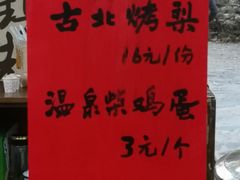 古北烤梨
16元/份
温泉柴鸡蛋
3元/个